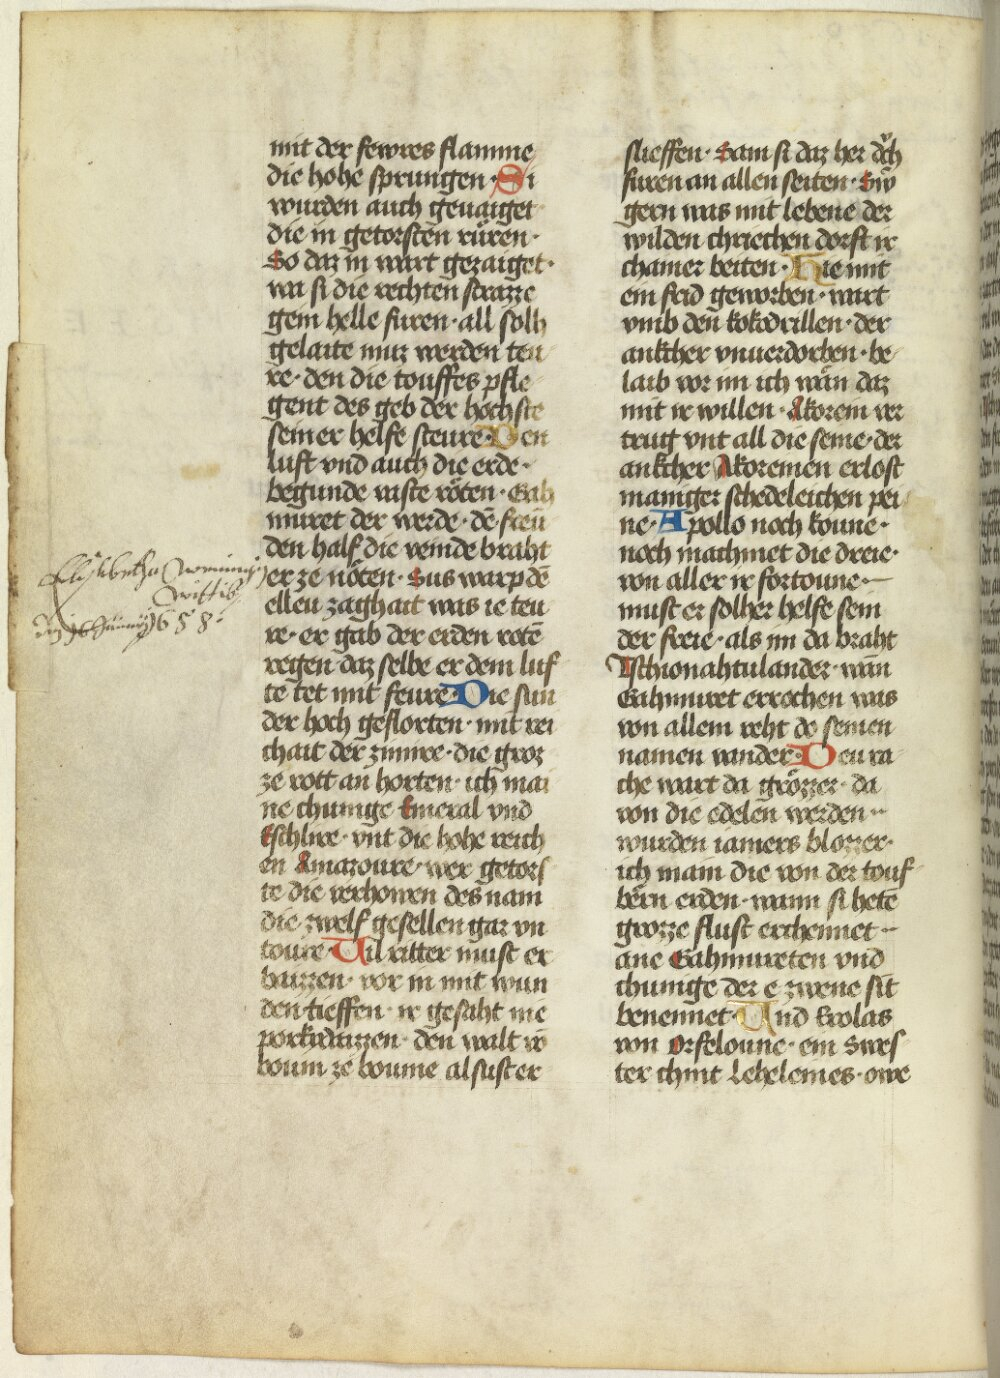 mit der fewres flamme
die hohe sprungen · Si
wurden auch genaiget
die in getorsten rüren ·
So daz in wart gezaiget ·
wa si die rechten strazze
gem helle furen · all solh
gelaite muz werden teu
re · den die touffes pfle
gent des geb der höchste
seiner helfe steure · Den
luft vnd auch die erde ·
begunde vaste röten · Gah
muret der werde · dē freū
den half die veinde braht
er ze nöten · Sus warp dē
ellen zaghait was ie teu
re · er gab der erden rotē
regen daz selbe er dem luf
te tet mit feure · Die sun
der hoch geflorten · mit rei
chait der zimire · die groz
ze rott an horten · ich mai
ne chunige Emeral vnd
Eschlire · vnt die hohe reich
en Amazoure · wer getors
te die verhowen des nam
die zwelf gesellen gar vn
toure · Uil ritter must er
baizzen · vor in mit wun
den tieffen · ir gesaht nie
porkwaizzen · den walt vō
boum ze boume alsust er
slieffen · Sam si daz her dͦch
furen an allen seiten · Swͦ
gern was mit lebene der
wilden chriechen dorft ir
chamer beiten · Hie mit
ein frid geworben · wart
vmb den kokodrillen · der
ankcher vnuerdorben · be
laib vor im ich wän daz
mit ir willen · Akorein ver
trug vnt all die seine · der
ankcher Akoreinen erlost
maniger schedeleichen pei
ne · Apollo noch koune ·
noch machmet die dreie ·
von aller ir fortoune ·
must er solher helfe sein
der freie · als im da braht
Tschionahtulander · wān
Gahmuret errochen was
von allem reht do seinen
namen vander · Deu ra
che wart da grözzer · da
von die edelen werden ··
wurden iamers blozzer ·
ich main die von der touf
bern erden · wann si hetē
grozze flust erchennet ··
ane Gahmureten vnd
chunige der e zwene sit
bennennet · Und Erolas
von Orfeloune · ein Swes
ter chint Lehelenies · owe
Elisabetha
1658 ·